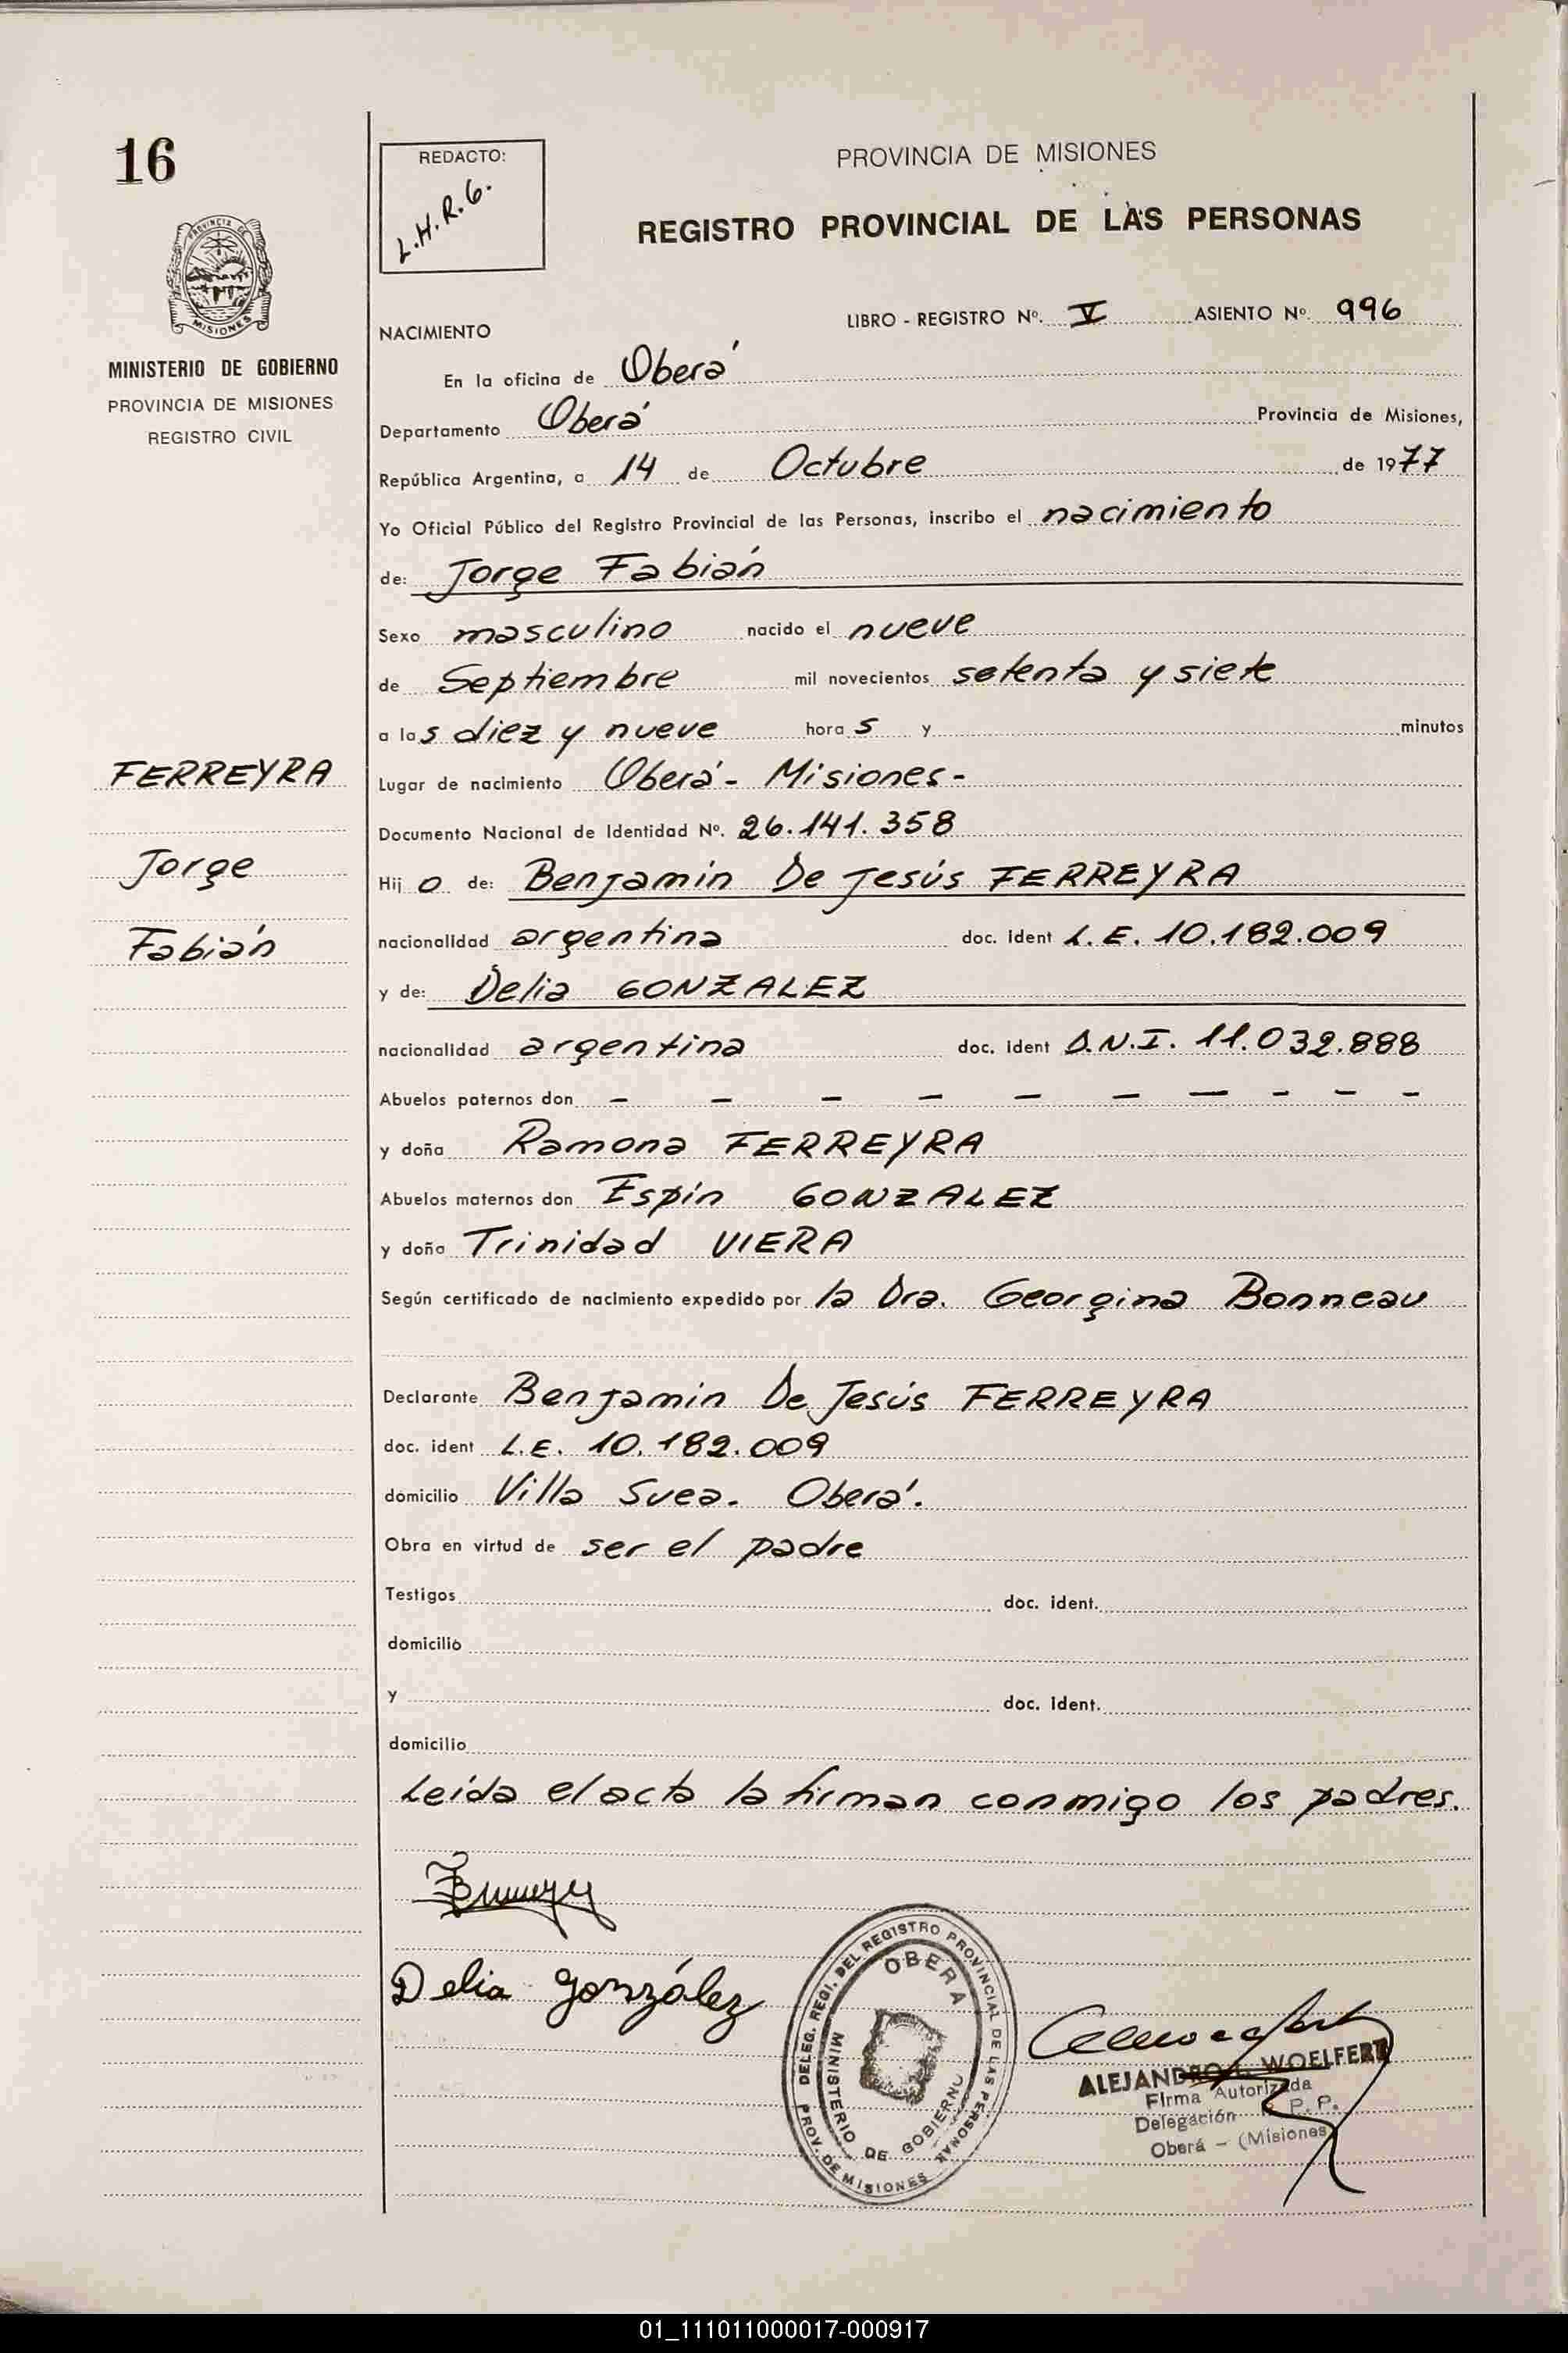 16
PROVINCIA DE
MISIONES
MINISTERIO DE GOBIERNO
PROVINCIA DE MISIONES
REGISTRO CIVIL
FERREYRA
Jorge
Fabián
REDACTO:
L.H.R.G.
PROVINCIA DE MISIONES
REGISTRO PROVINCIAL DE LAS PERSONAS
NACIMIENTO LIBRO - REGISTRO Nº. V ASIENTO Nº. 996
En la oficina de Oberá
Departamento Oberá Provincia de Misiones,
República Argentina, a 14 de Octubre de 1977
Yo Oficial Público del Registro Provincial de las Personas, inscribo el nacimiento
de: Jorge Fabián
Sexo masculino nacido el nueve
de Septiembre mil novecientos setenta y siete
a las diez y nueve horas y minutos
Lugar de nacimiento Oberá - Misiones -
Documento Nacional de Identidad Nº. 26.141.358
Hijo de: Benjamin De Jesús FERREYRA
nacionalidad argentina doc. ident L.E. 10.182.009
y de: Delia GONZALEZ
nacionalidad argentina doc. ident D.N.I. 11.032.888
Abuelos paternos don - - - - - - - - - -
y doña Ramona FERREYRA
Abuelos maternos don Espín GONZALEZ
y doña Trinidad VIERA
Según certificado de nacimiento expedido por la Dra. Georgina Bonneau
Declarante Benjamin De Jesús FERREYRA
doc. ident L.E. 10.182.009
domicilio Villa Svea. Oberá.
Obra en virtud de ser el padre
Testigos doc. ident.
domicilio
y doc. ident.
domicilio
Leída el acta la firman conmigo los padres.
Delia González
DELEG. REGI. DEL REGISTRO PROVINCIAL DE LAS PERSONAS
OBERA
MINISTERIO DE GOBIERNO
PROV. DE MISIONES
ALEJANDRO WOELFERT
Firma Autorizada
Delegación P. P.
Oberá - (Misiones)
01_111011000017-000917